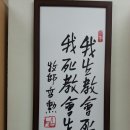 我生教會死
我死教會生
牧師